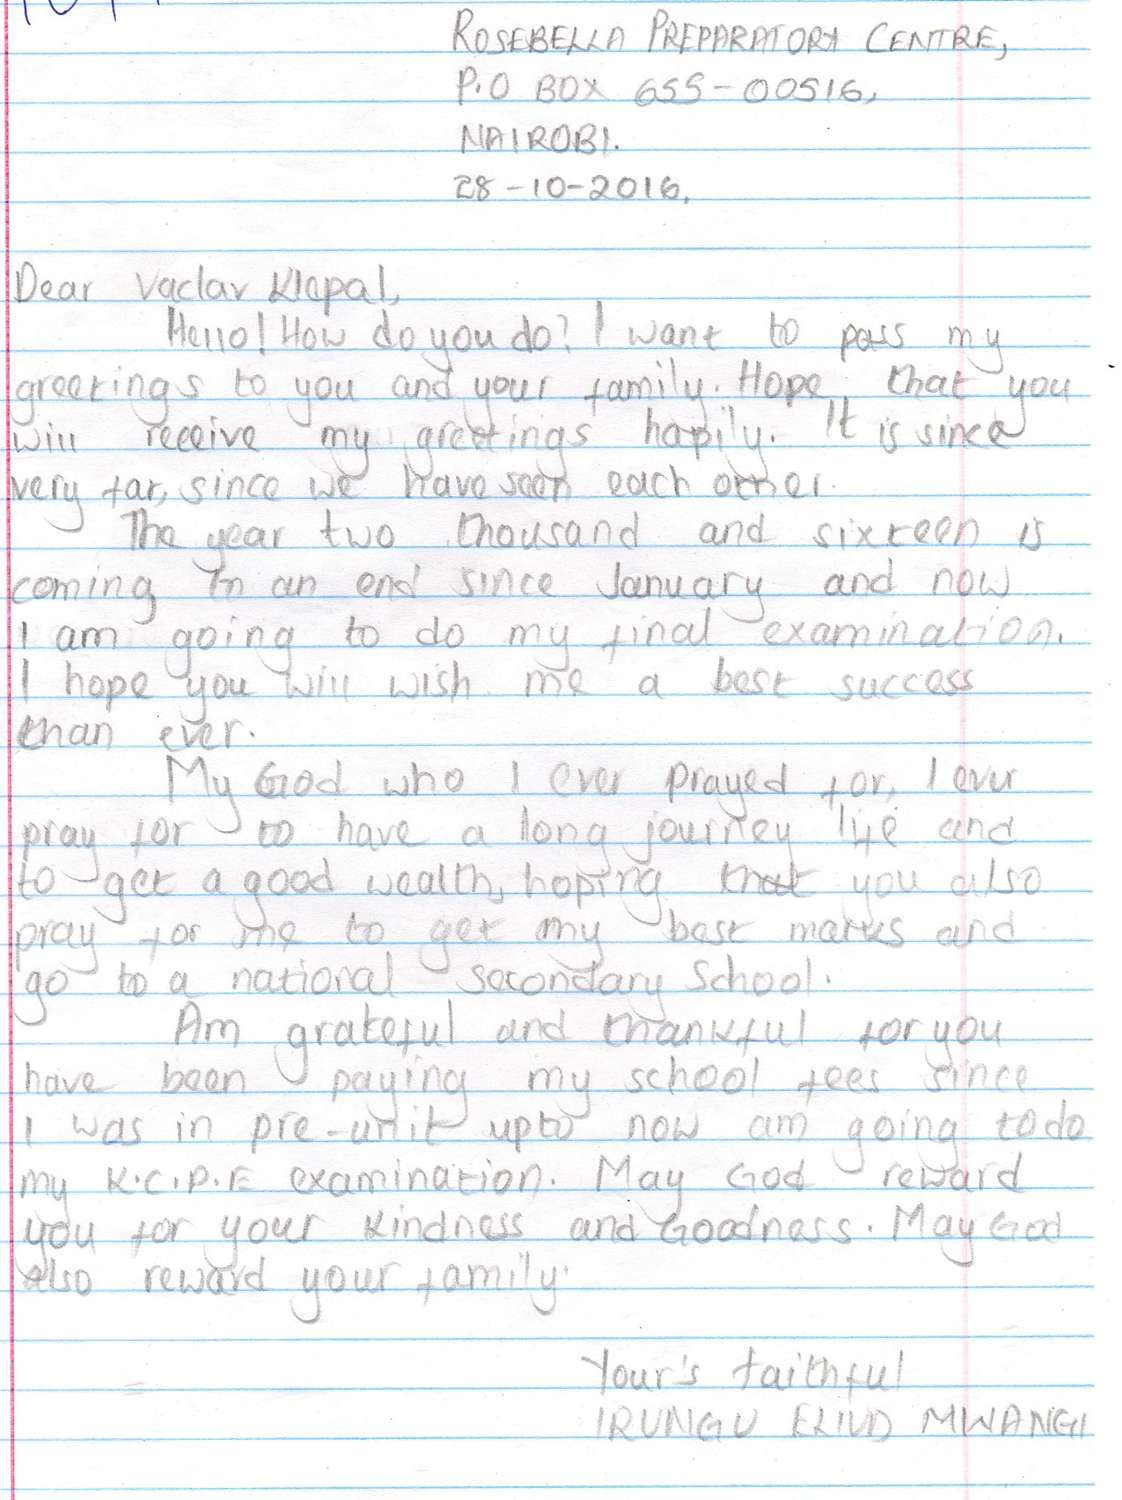 ROSEBELLA PREPARATORY CENTRE,
P.O BOX 655-00516,
NAIROBI.
28-10-2016.
Dear Vaclav Klapal,
Hello! How do you do? I want to pass my
greetings to you and your family. Hope that you
will receive my greetings hapily. It is since
very far, since we have seen each other.
The year two thousand and sixteen is
coming in an end since January and now
I am going to do my final examination.
I hope you will wish me a best success
than ever.
My God who I ever prayed for, I ever
pray for to have a long journey life and
to get a good wealth, hoping that you also
pray for me to get my best marks and
go to a national secondary school.
Am grateful and thankful for you
have been paying my school fees since
I was in pre-unit upto now am going to do
my K.C.P.E examination. May God reward
you for your kindness and Goodness. May God
also reward your family.
Your's faithful
IRUNGU ELIUD MWANGI